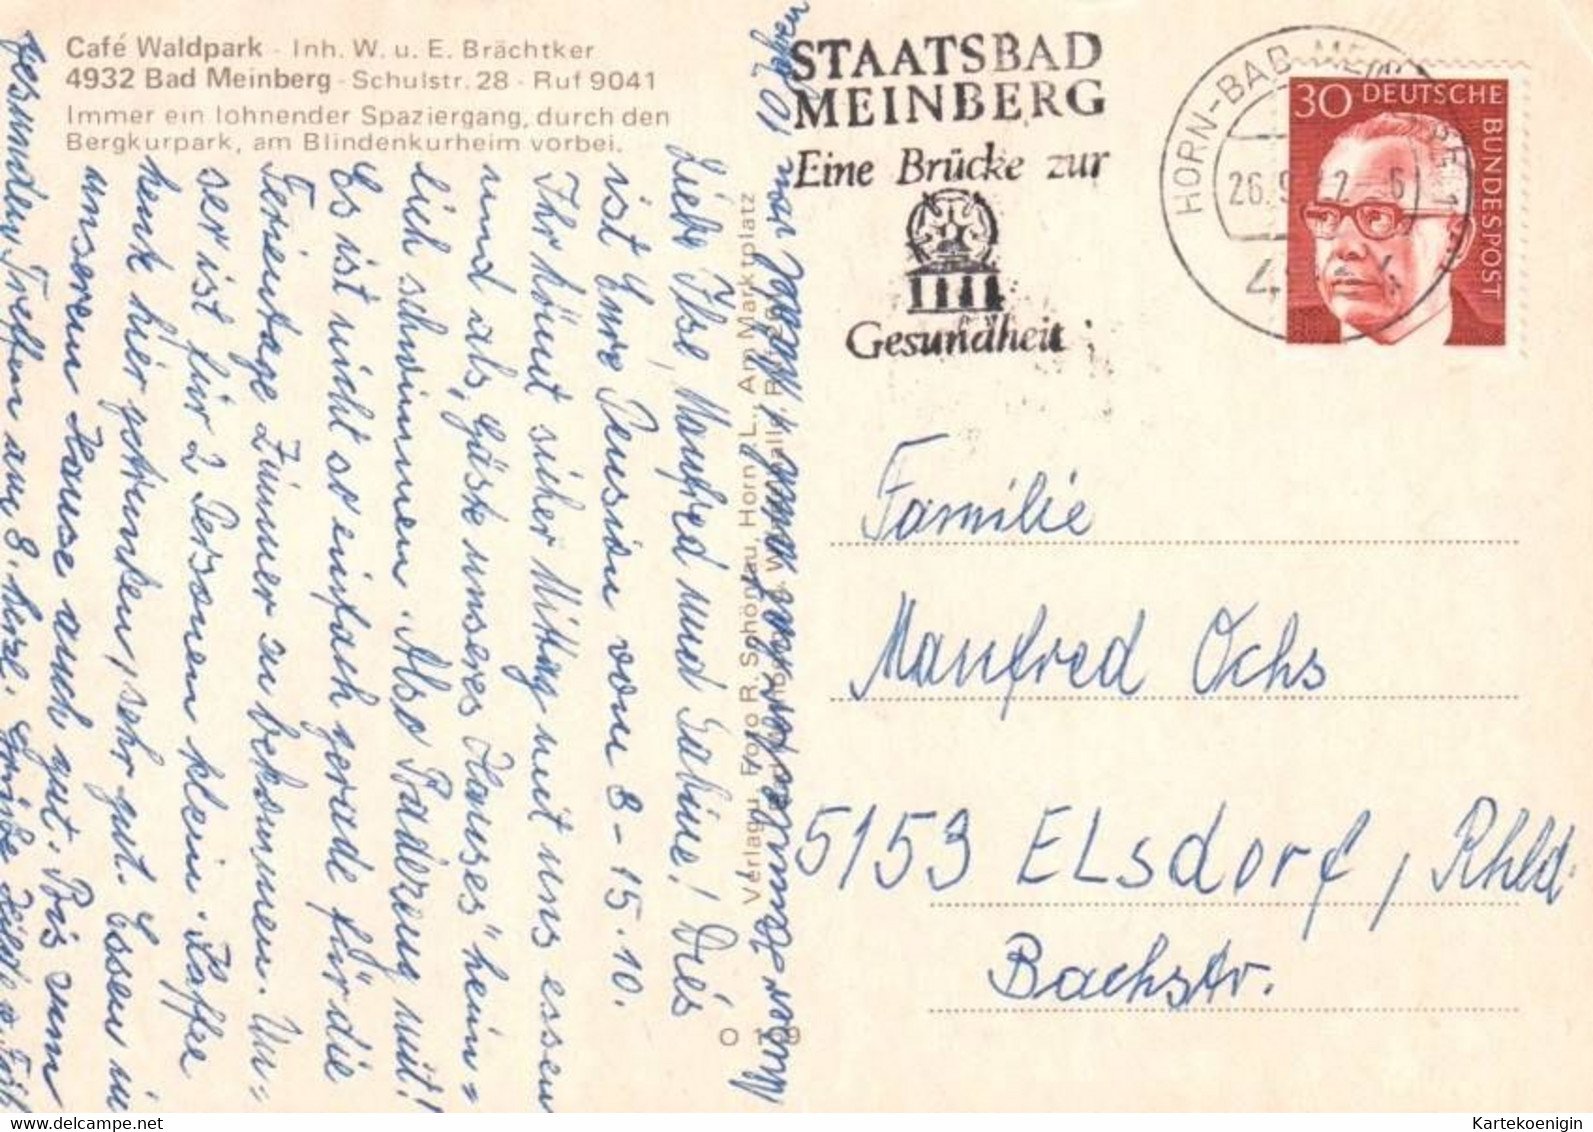 Café Waldpark - Inh. W. u. E. Brächtker
4932 Bad Meinberg - Schulstr. 28 - Ruf 9041
Immer ein lohnender Spaziergang, durch den
Bergkurpark, am Blindenkurheim vorbei.
STAATSBAD
MEINBERG
Eine Brücke zur
Gesundheit
HORN-BAD MEINBERG 1
26.9. 2-6
30 DEUTSCHE
BUNDESPOST
Liebe Ilse, Manfred und Sabine! Dies
ist Eure Pension vom 8-15.10.
Ihr könnt sicher Mittag mit uns essen
und als „Gäste unseres Hauses" heim=
lich schwimmen. Also Badezeug mit!
Es ist nicht so einfach gerade für die
Ferientage Zimmer zu bekommen. Un=
ser ist für 2 Personen klein. Kaffee
heut hier getrunken, sehr gut. Essen in
unserem Hause auch gut. Bis zum
gesunden Treffen am 8. herzl. Grüße
Unser
Verlag u. Foto R. Schönlau, Horn i. L., Am Marktplatz
Familie
Manfred Ochs
5153 Elsdorf, Rhld.
Bachstr.